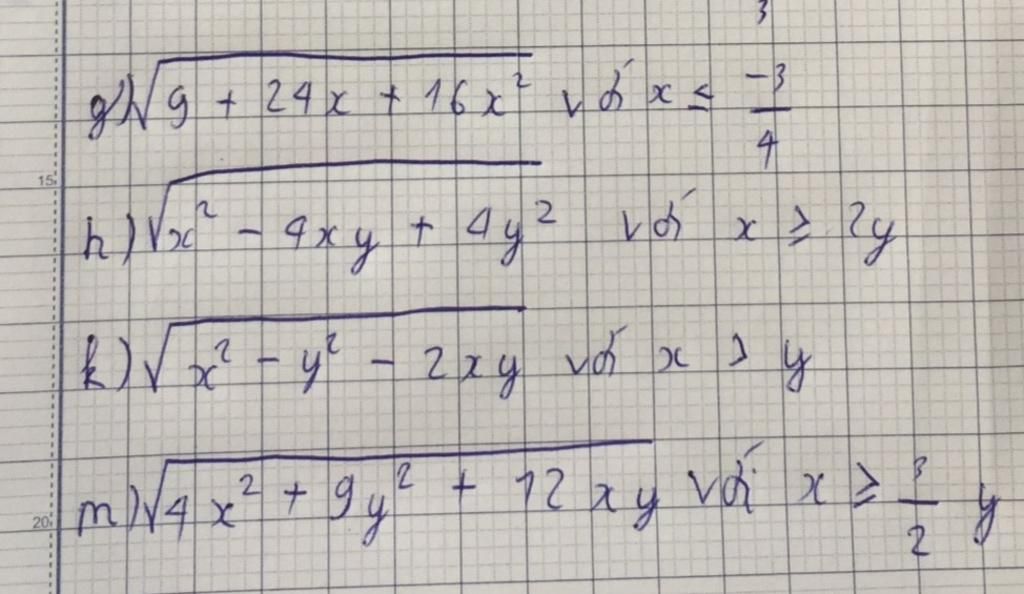 3
g) √(9 + 24x + 16x²) với x ≤ -3/4
15
h) √(x² - 4xy + 4y²) với x ≥ 2y
k) √(x² - y² - 2xy) với x > y
m) √(4x² + 9y² + 12xy) với x ≥ 3/2 y
20